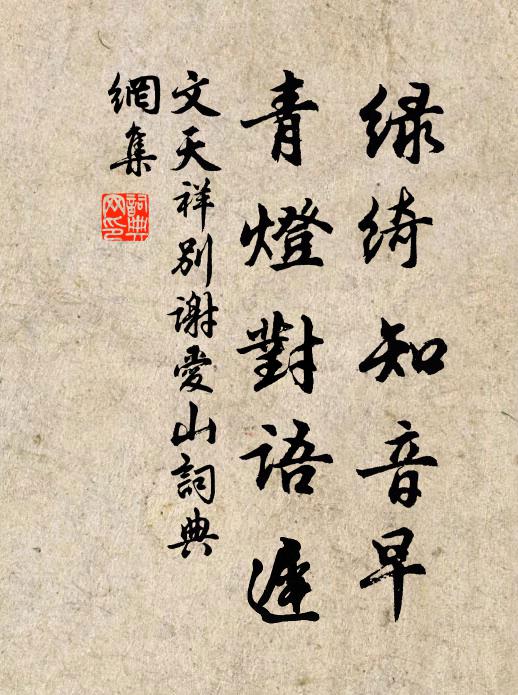 绿绮知音早
青燈對語遲
文天祥别谢愛山詞典
網集
詞典
网印